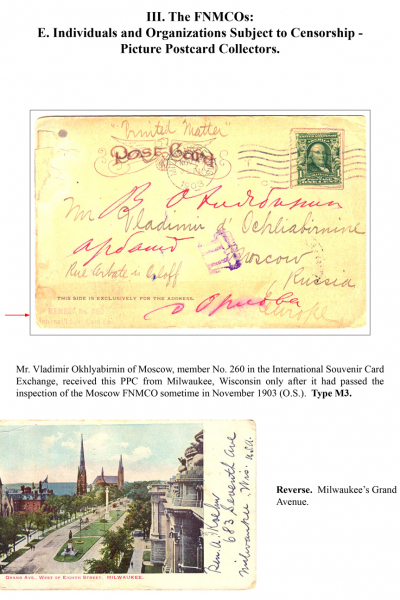 III. The FNMCOs:
E. Individuals and Organizations Subject to Censorship -
Picture Postcard Collectors.
"Printed Matter"
Post Card
1903
Mr. Vladimir d'Ochliabinine
Moscow
Russia
Europe
THIS SIDE IS EXCLUSIVELY FOR THE ADDRESS.
Mr. Vladimir Okhlyabirnin of Moscow, member No. 260 in the International Souvenir Card
Exchange, received this PPC from Milwaukee, Wisconsin only after it had passed the
inspection of the Moscow FNMCO sometime in November 1903 (O.S.). Type M3.
683 Seventh Ave
Milwaukee Wis. U.S.A.
GRAND AVE. WEST OF EIGHTH STREET, MILWAUKEE.
Reverse. Milwaukee's Grand
Avenue.